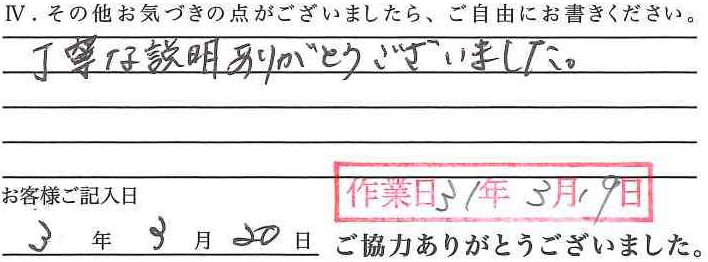 Ⅳ.その他お気づきの点がございましたら、ご自由にお書きください。
丁寧な説明ありがとうございました。
作業日31年3月19日
お客様ご記入日
3年3月20日
ご協力ありがとうございました。